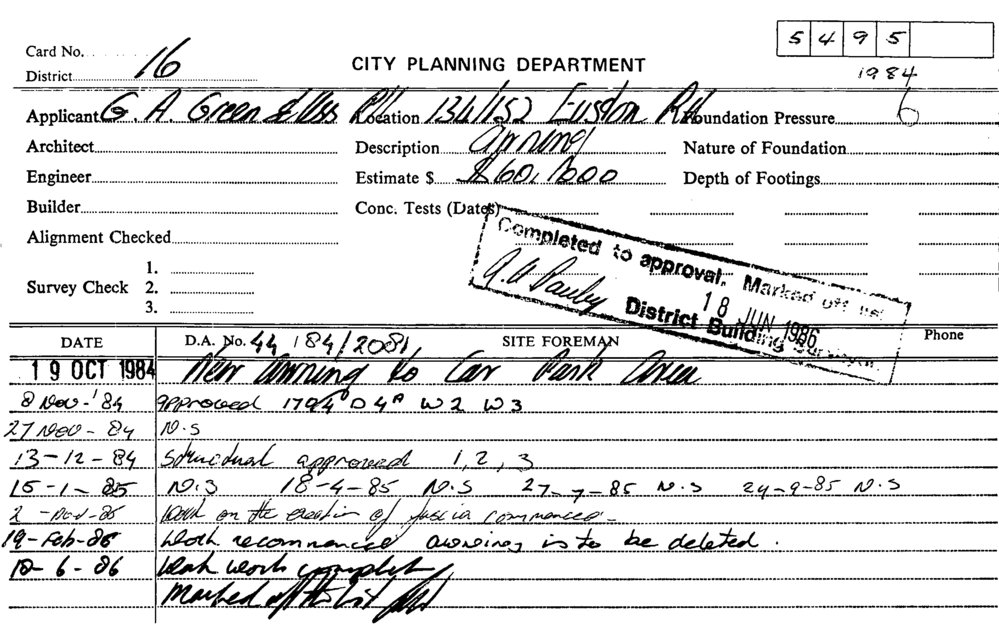 5 4 9 5
Card No.
District 16
CITY PLANNING DEPARTMENT
1984
Applicant G. A. Green Location 134/152 Euston Rd Foundation Pressure 6
Architect Description Awning Nature of Foundation
Engineer Estimate $ $60,000 Depth of Footings
Builder Conc. Tests (Dates)
Alignment Checked
Survey Check 1.
2.
3.
Completed to approval. Marked off list
18 JUN 1986
District Building Surveyor.
DATE D.A. No. 44 / 84 / 2081 SITE FOREMAN Phone
19 OCT 1984 New Awning to Car Park Area
8 Nov - '84 approved W2 W3
27 Nov - 84 N.S
13-12-84 Structural approved 1, 2, 3
15-1-85 N.S 18-4-85 N.S 27-7-85 N.S 24-9-85 N.S
work on the erection of fascia commenced -
19-Feb-86 work recommenced awning is to be deleted.
work complete
Marked off the list